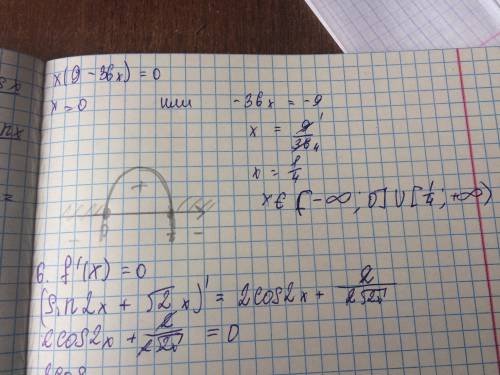 x(9 - 36x) = 0
x = 0 или -36x = -9
x = 9/36 1 4
x = 1/4
+
- -
x ∈ (-∞; 0] ∪ [1/4; +∞)
6. f'(x) = 0
(Sin2x + √2x)' = 2cos2x + 2/2√2x
2cos2x + 2/2√2x = 0